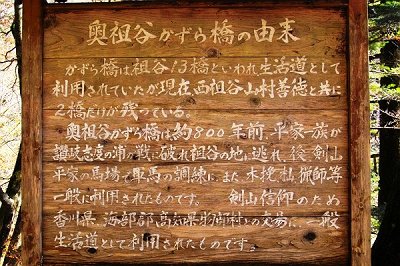 奥祖谷かずら橋の由来
かずら橋は祖谷13橋といわれ生活道として
利用されていたが現在、西祖谷山村善徳と共に
2橋だけが残っている。
奥祖谷かずら橋は約800年前、平家一族が
讃岐志度の浦の戦に破れ祖谷の地に逃れ、後、剣山
平家の馬場で軍馬の調練に、また、木挽、猟師等
一般に利用されたものです。 剣山信仰のため
香川県、海部郡、高知県物部村との交易に、一般
生活道として利用されたものです。